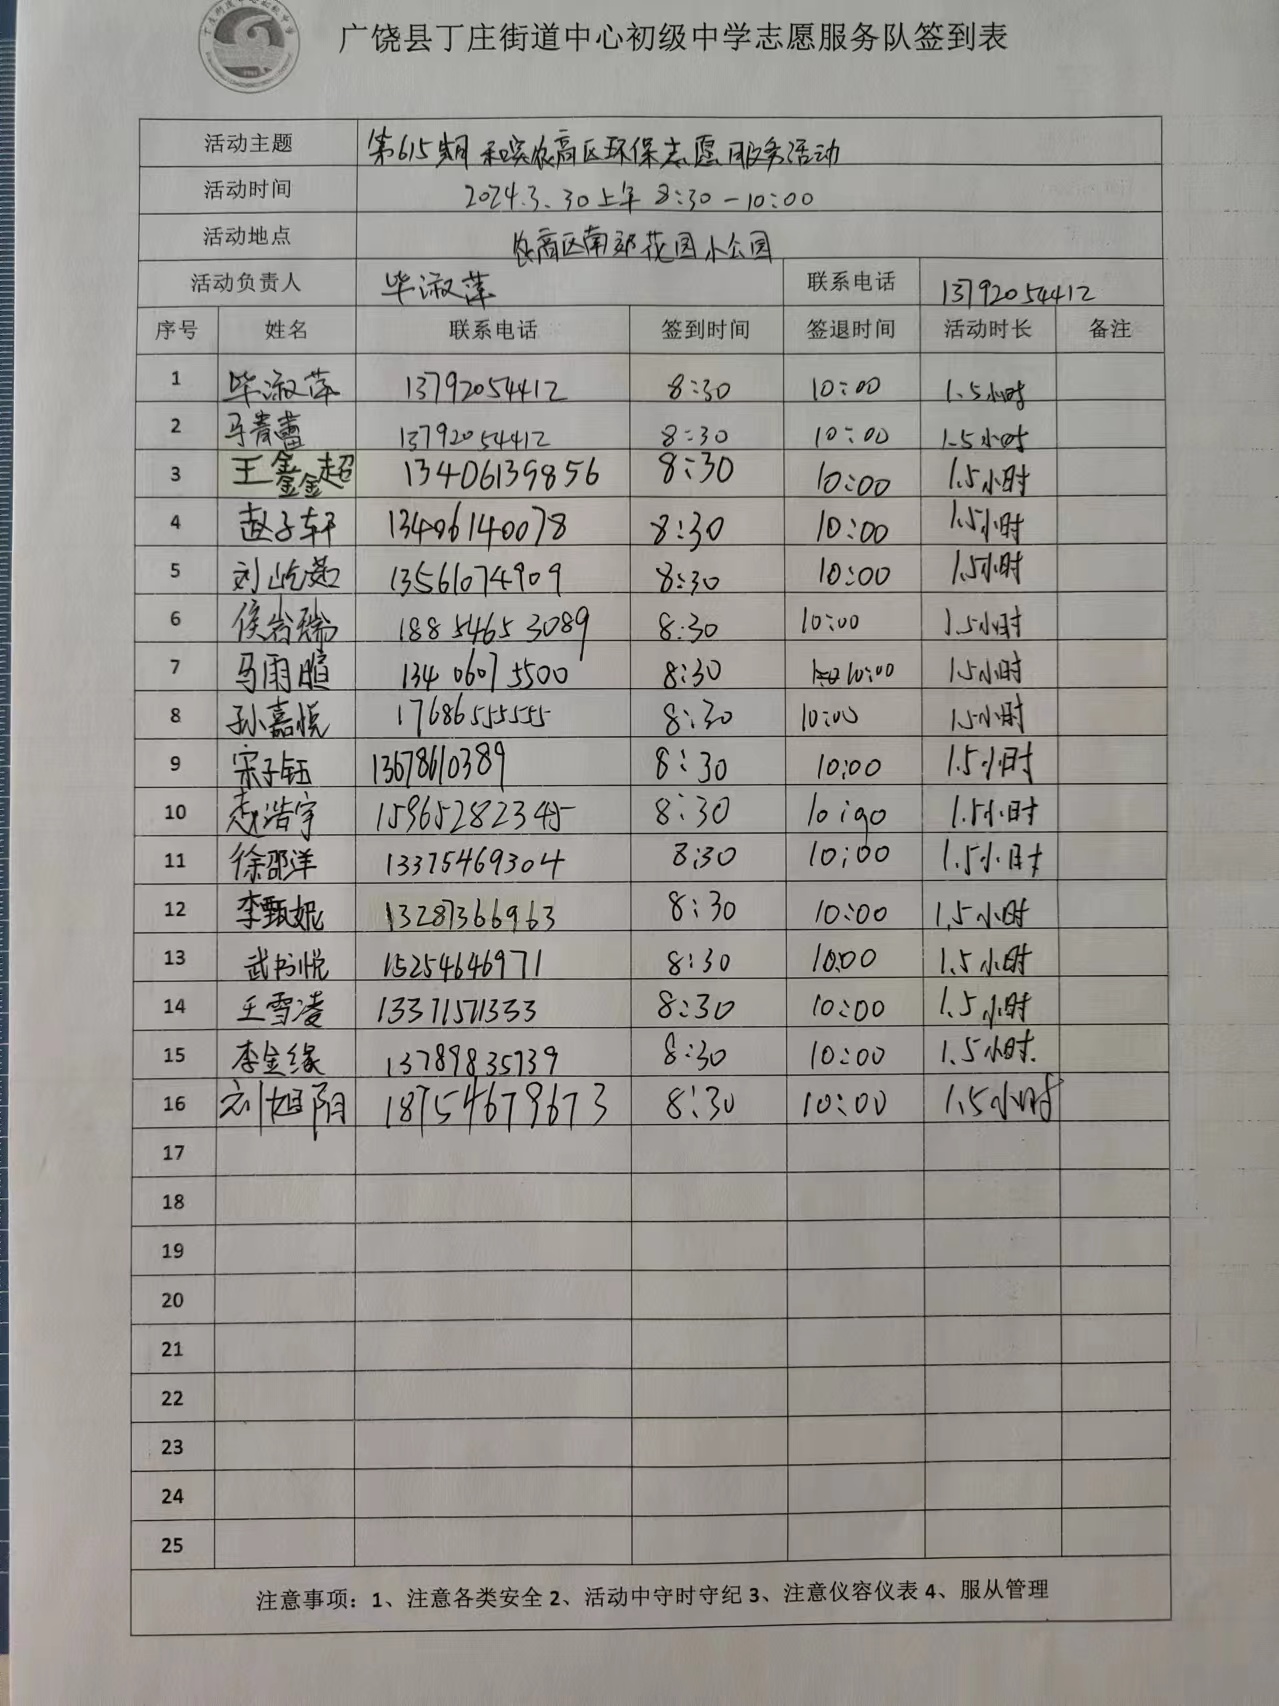 广饶县丁庄街道中心初级中学志愿服务队签到表
活动主题 第615期 农商区环保志愿服务活动
活动时间 2024.3.30上午 8:30-10:00
活动地点 农商区南郊花园小公园
活动负责人 毕淑萍 联系电话 13792054412
序号 姓名 联系电话 签到时间 签退时间 活动时长 备注
1 毕淑萍 13792054412 8:30 10:00 1.5小时
2 马青蕾 13792054412 8:30 10:00 1.5小时
3 王鑫超 13406139856 8:30 10:00 1.5小时
4 赵子轩 13406140078 8:30 10:00 1.5小时
5 刘屹 13561074909 8:30 10:00 1.5小时
6 侯岩瑞 18854653089 8:30 10:00 1.5小时
7 马雨暄 13406075500 8:30 10:00 1.5小时
8 孙嘉悦 17686555555 8:30 10:00 1.5小时
9 宋子钰 13678610389 8:30 10:00 1.5小时
10 赵浩宇 15965282345 8:30 10:00 1.5小时
11 徐邵洋 13375469304 8:30 10:00 1.5小时
12 李甄妮 13287366963 8:30 10:00 1.5小时
13 武书悦 15254646971 8:30 10:00 1.5小时
14 王雪凌 13371571333 8:30 10:00 1.5小时
15 李金缘 13789835739 8:30 10:00 1.5小时.
16 刘旭阳 18754679673 8:30 10:00 1.5小时
17
18
19
20
21
22
23
24
25
注意事项：1、注意各类安全 2、活动中守时守纪 3、注意仪容仪表 4、服从管理